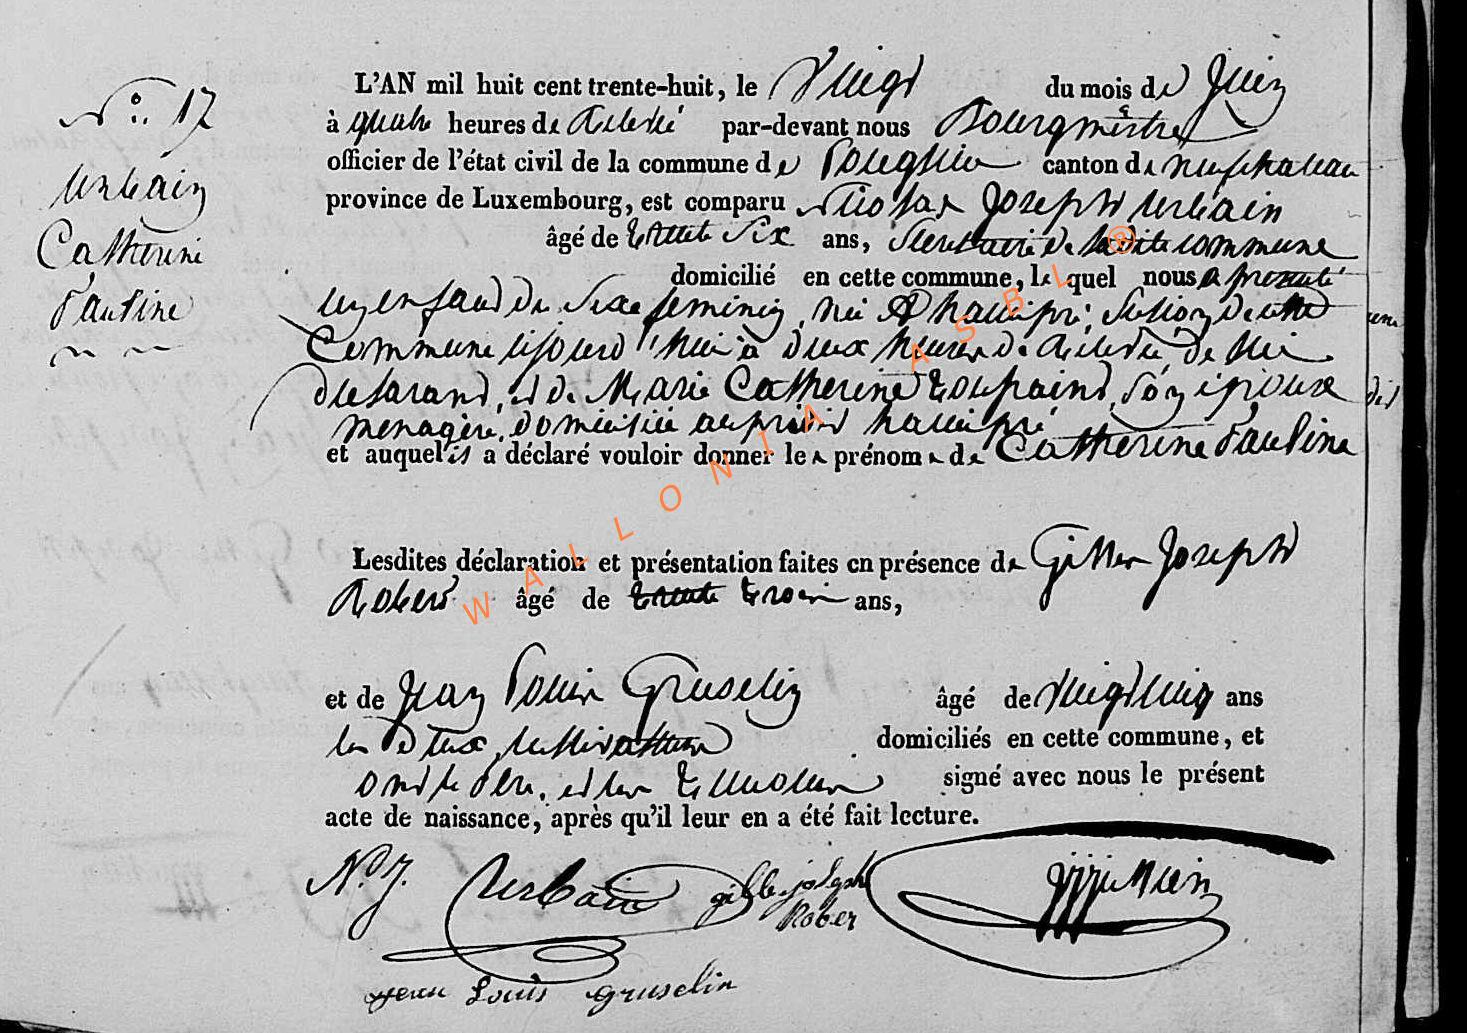 N° 17
Urbain
Catherine
Pauline
L'AN mil huit cent trente-huit, le Vingt du mois de Juin
à quatre heures de Relevé par-devant nous Bourgmestre
officier de l'état civil de la commune de Longlier canton de neufchateau
province de Luxembourg, est comparu Nicolas Joseph urbain
âgé de trente Six ans, Secretaire de ladite commune
domicilié en cette commune, le quel nous a presenté
un enfant du Sexe feminin, né A hamipré, Section de cette
Commune aujourd'hui à deux heures de Relevée, de lui
declarant, et de Marie Catherine toupaint, Son epouse
menagère, domiciliée audit hamipré
et auquel il a déclaré vouloir donner les prénoms de Catherine Pauline
Lesdites déclaration et présentation faites en présence de Gilles Joseph
Robert âgé de trente trois ans,
et de Jean Louis Gruselin âgé de Vingt cinq ans
les deux cultivateurs domiciliés en cette commune, et
ont le père, et les temoins signé avec nous le présent
acte de naissance, après qu'il leur en a été fait lecture.
N. J. Urbain gille joseph
Rober
Jean Louis gruselin
WALLONIA ASBL ®